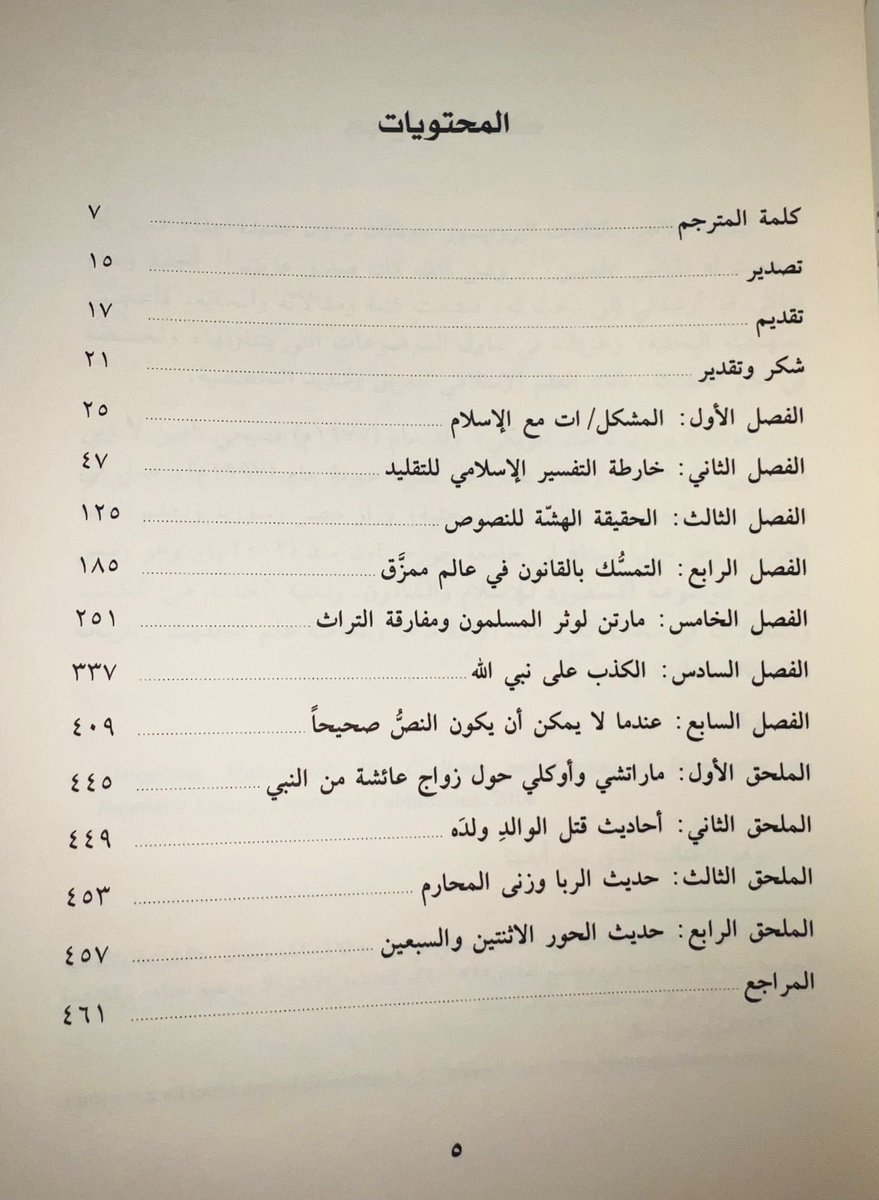 المحتويات
كلمة المترجم ٧
تصدير ١٥
تقديم ١٧
شكر وتقدير ٢١
الفصل الأول: المشكل/ات مع الإسلام ٢٥
الفصل الثاني: خارطة التفسير الإسلامي للتقليد ٤٧
الفصل الثالث: الحقيقة الهشّة للنصوص ١٢٥
الفصل الرابع: التمسُّك بالقانون في عالم ممزَّق ١٨٥
الفصل الخامس: مارتن لوثر المسلمون ومفارقة التراث ٢٥١
الفصل السادس: الكذب على نبي الله ٣٣٧
الفصل السابع: عندما لا يمكن أن يكون النصُّ صحيحاً ٤٠٩
الملحق الأول: ماراتشي وأوكلي حول زواج عائشة من النبي ٤٤٥
الملحق الثاني: أحاديث قتل الوالدِ ولدَه ٤٤٩
الملحق الثالث: حديث الربا وزنى المحارم ٤٥٣
الملحق الرابع: حديث الحور الاثنتين والسبعين ٤٥٧
المراجع ٤٦١
٥